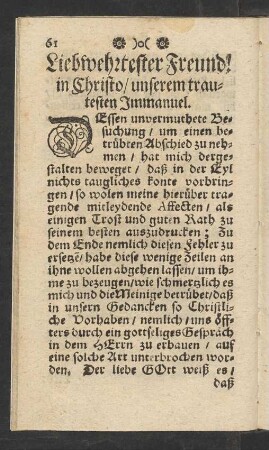 61 ❁ )o( ❁
Liebwehrtester Freund!
in Christo/ unserem trau-
testen Immanuel.
DEssen unvermuthete Be-
suchung/ um einen be-
trübten Abschied zu neh-
men / hat mich derge-
stalten beweget / daß in der Eyl
nichts taugliches konte vorbrin-
gen / so wolen meine hierüber tra-
gende mitleydende Affecten / als
einigen Trost und guten Rath zu
seinem besten auszudrucken: Zu
dem Ende nemlich diesen Fehler zu
ersetzẽ/ habe diese wenige Zeilen an
ihne wollen abgehen lassen/ um ih-
me zu bezeugen/ wie schmertzlich es
mich und die Meinige betrübet/ daß
in unsern Gedancken so Christli-
che Vorhaben / nemlich / uns öff-
ters durch ein gottseliges Gespräch
in dem HErrn zu erbauen / auf
eine solche Art unterbrochen wor-
den. Der liebe GOtt weiß es/
daß